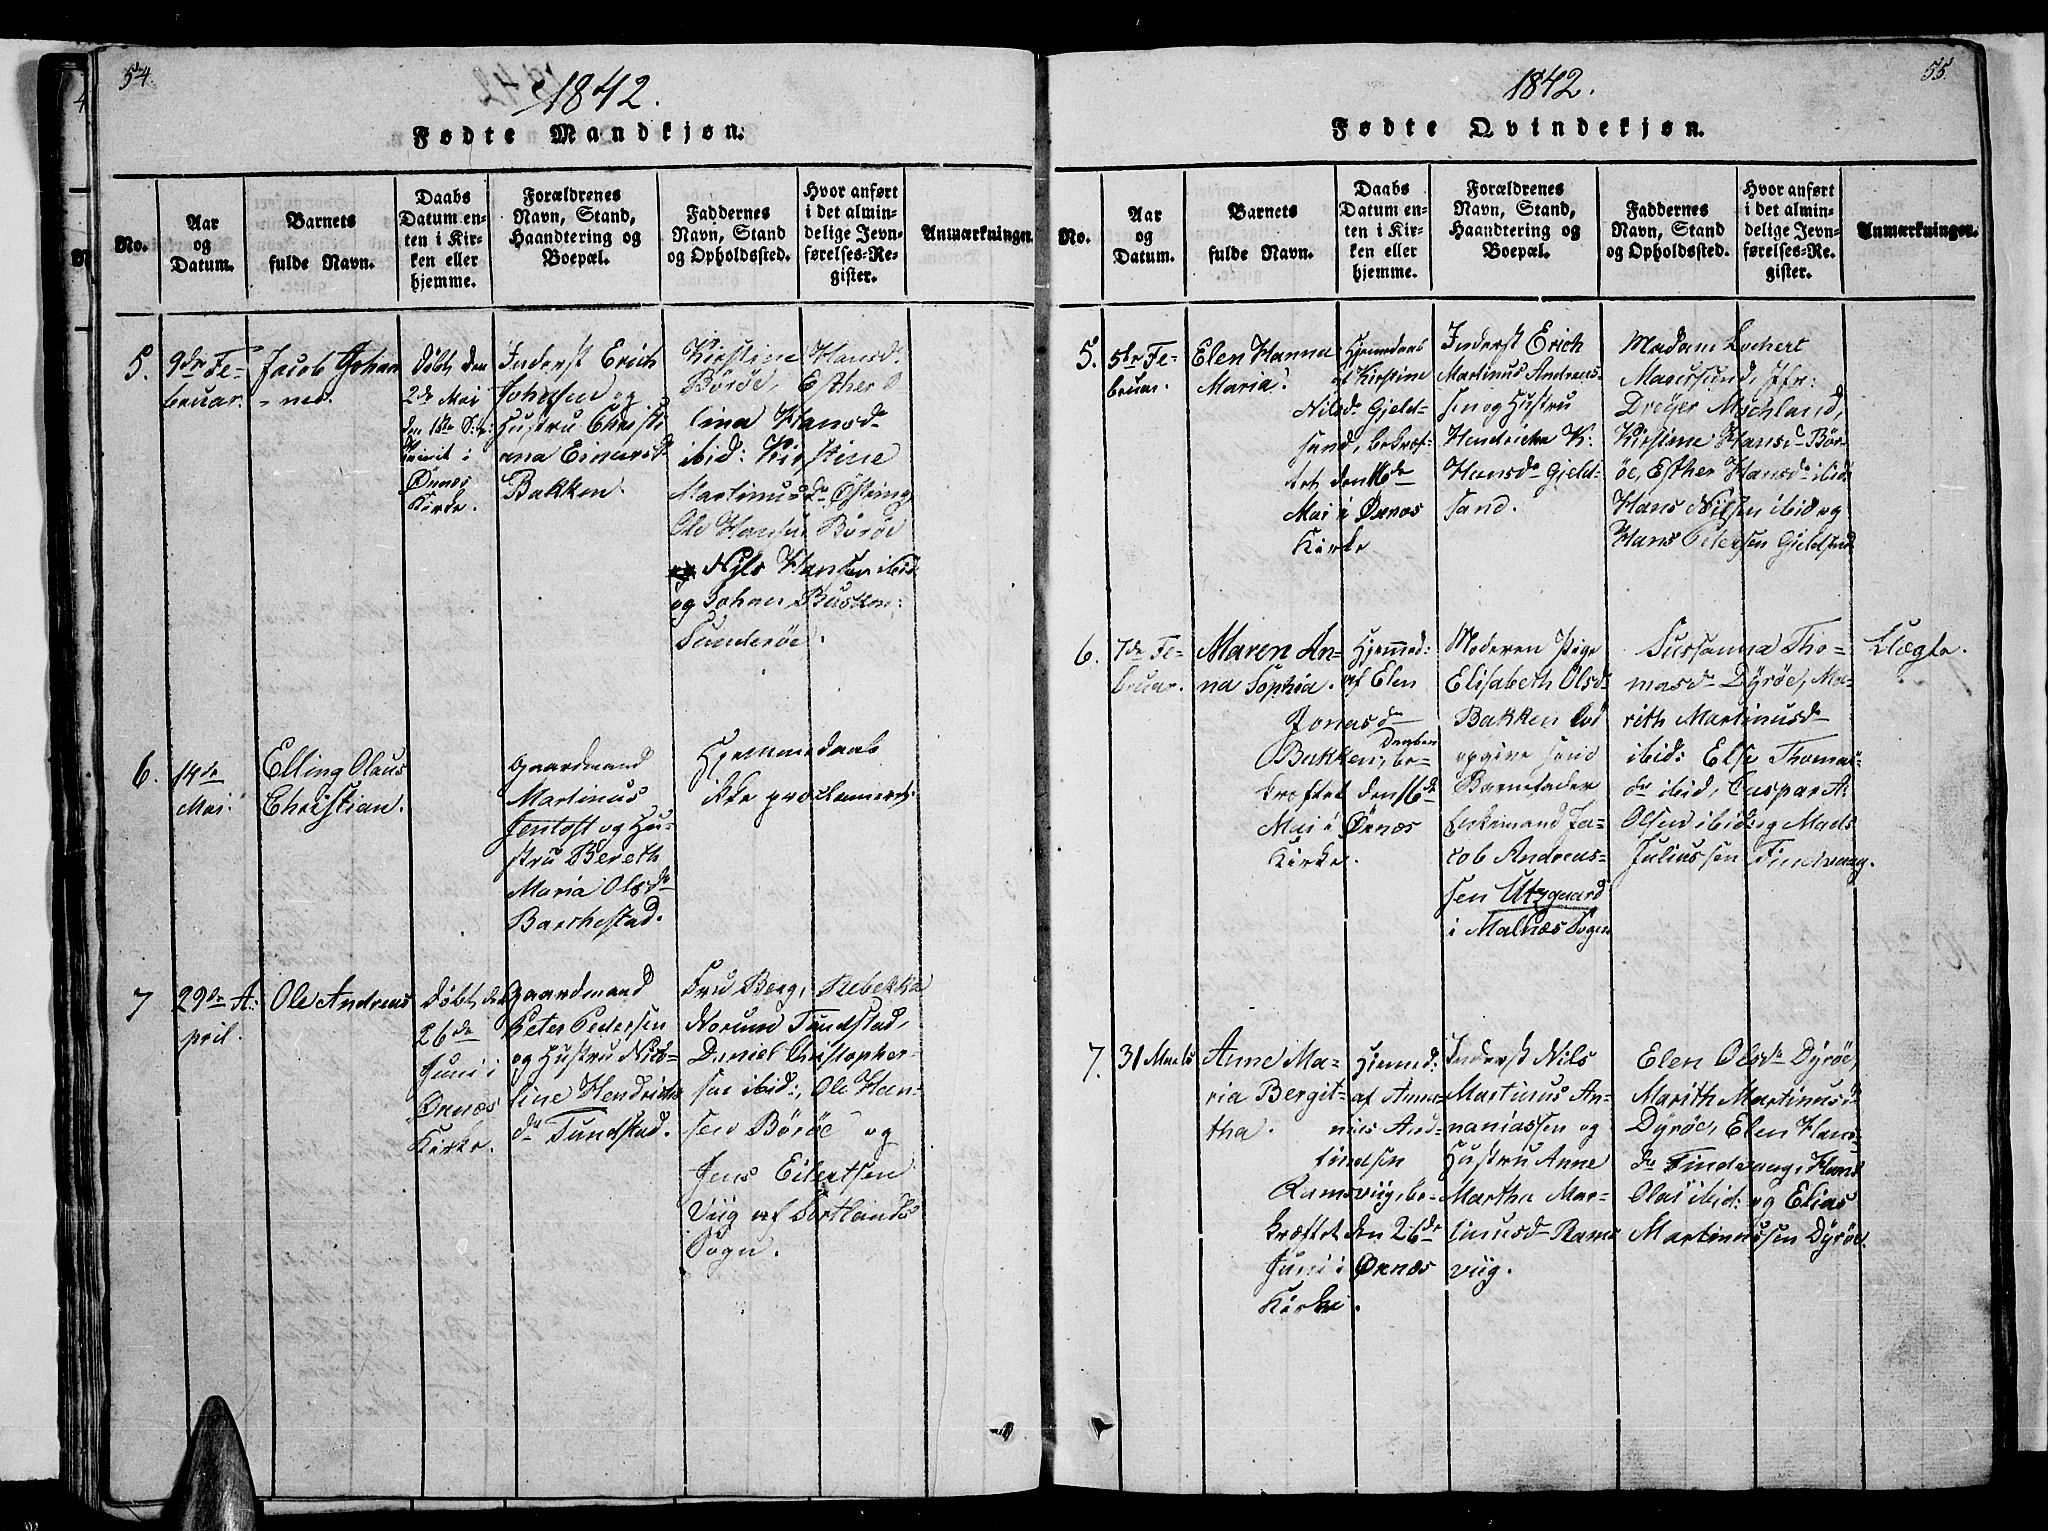 54.
1842.
Fødte Mandkjøn.
No.
Aar
og
Datum.
Barnets
fulde Navn.
Daabs
Datum en-
ten i Kir-
ken eller
hjemme.
Forældrenes
Navn, Stand,
Haandtering og
Boepæl.
Faddernes
Navn, Stand
og Opholdssted.
Hvor anført
i det almin-
delige Jevn-
førelses-Re-
gister.
Anmærkninger.
5.
9de Fe-
bruar.
Jacob Johan
nes.
Døbt den
2de Mai
i
Ørnes
Kirke.
Inderst Erich
Johnsen og
Hustru Christi
ana Einarsd
Bakken.
Kirstine Hansd
Börøe, Esther O
lina Hansd
ibid: Kirstine
Martinusd
Ole Hansen Börøe
Nils Hansen ibid
og Johan
6.
14de
Mai.
Elling Olaus
Christian.
Gaardmand
Martinus
Jentoft og Hu-
stru Bereth
Maria Olsd
Barkestad.
Hjemmedaab
ikke
7
29de A-
pril.
Ole Andreas
Døbt den
26de
Juni i
Ørnæs
Kirke.
Gaardmand
Peter Pedersen
og Hustru Nico-
line Hendriks
d Tundstad.
Fru Berg, Rebekka
Norum Tundstad,
Daniel Christopher-
sen ibid:, Ole Han-
sen Börøe og
Jens Eilertsen
Viig af Sortlands
Sogn.
55.
1842.
Fødte Qvindekjøn.
No.
Aar
og
Datum.
Barnets
fulde Navn.
Daabs
Datum en-
ten i Kir-
ken eller
hjemme.
Forældrenes
Navn, Stand,
Haandtering og
Boepæl.
Faddernes
Navn, Stand
og Opholdssted.
Hvor anført
i det almin-
delige Jevn-
førelses-Re-
gister.
Anmærkninger.
5.
5te Fe-
bruar.
Elen Hanna
Maria.
Hjemmedøbt
af Kirstine
Nilsd Gjeld-
sand, bekræf-
tet den 16de
Mai i Ørnes
Kirke
Inderst Erich
Martinus Andreas-
sen og Hustru
Hendricha K:
Hansd Gjeld-
sand.
Madam Lochert
Dreyer
Kirstine Hansd Bör-
øe, Esther Hansd ibid
Hans Nilsen ibid og
Hans Petersen Gjeldsand
6.
7de Fe-
bruar.
Maren An-
na Sophia.
Hjemmed:
af Elen
Jonasd
Bakken, be-
kræftet den 16de
Mai i Ørnæs
Kirke.
Moderen Pige
Elisabeth Olsd
Bakken
opgive som
Barnefader
Enkemand Ja-
cob Andreas-
sen Utzgaard
i Malnæs Sogn
Sussanna Tho-
masd Dyröe, Ma-
rith Martinusd
ibid: Else Thomas-
d ibid, Casper A:
Olsen ibid: og Mads
Juliussen Tindvaag.
Uægte.
7.
31 Marts
Anne Ma-
ria Bergit-
tha.
Hjemmed:
af
Ramsviig, be-
kræftet den 26de
Juni i Ørnæs
Kirke.
Inderst Nils
Martinus An-
naniassen og
Hustru Anne
Martha Mar-
tinusd Rams
viig.
Elen Olsd Dyröe,
Marith Martinusd
Dyröe, Elen Hans-
d Tindvaag, Hans
Olai ibid: og Elias
Martinussen Dyröe.